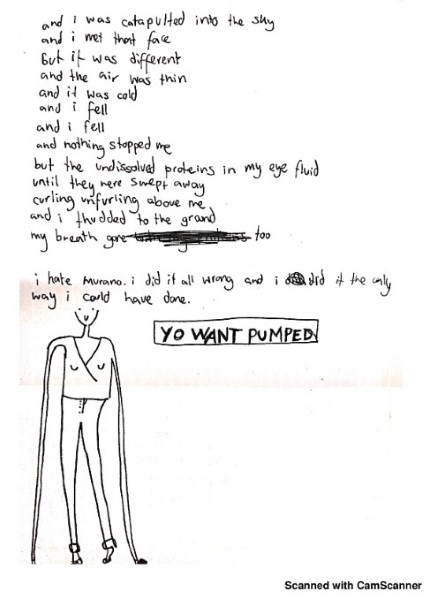 and i was catapulted into the sky
and i met that face
but it was different
and the air was thin
and it was cold
and i fell
and i fell
and nothing stopped me
but the undissolved proteins in my eye fluid
until they were swept away
curling unfurling above me
and i thudded to the ground
my breath gone too
i hate murano. i did it all wrong and i did it the only
way i could have done.
YO WANT PUMPED
Scanned with CamScanner